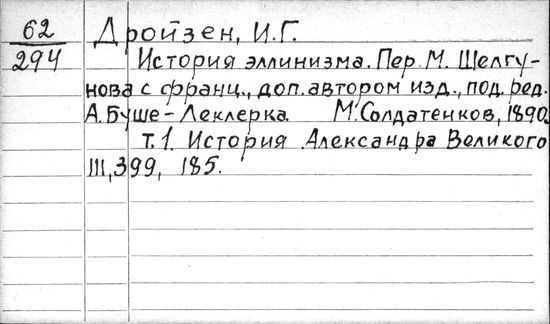 62 Дройзен, И.Г.
294 История эллинизма. Пер. М. Шелгу-
нова с франц., доп. автором изд., под. ред.
А. Буше-Леклерка. М. Солдатенков, 1890.
т.1. История Александра Великого
III, 399, 185.